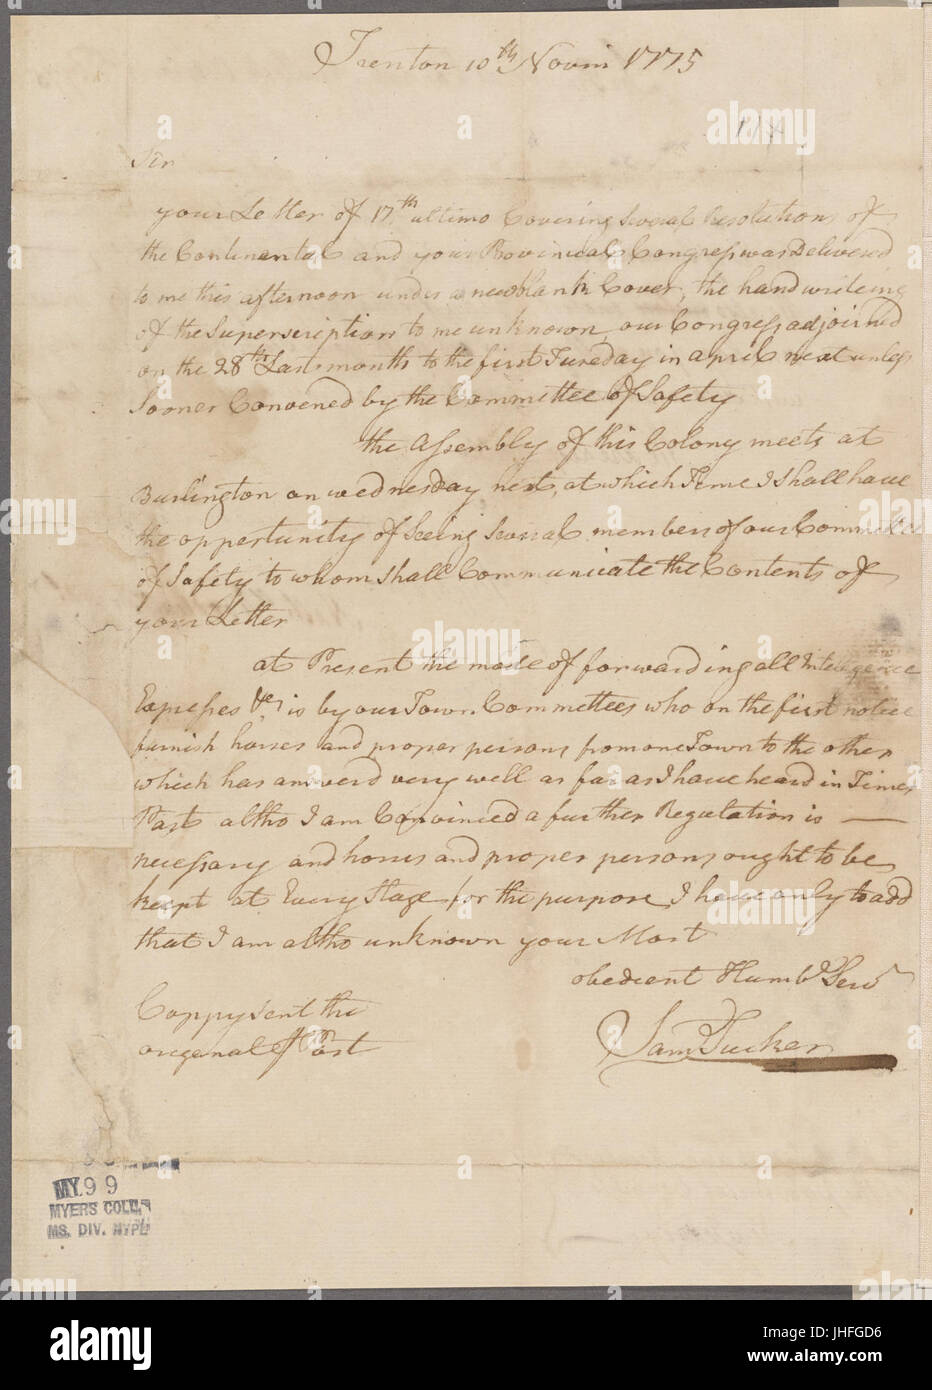 Trenton 10th Novm 1775
Sir
your Letter of 17th ultimo Covering Several Resolutions of
the Continental and your Provincial Congress was Delivered
to me this afternoon under a new blank Cover, the handwriteing
of the Superscription to me unknown our Congress adjoirned
on the 28th Last month to the first Tuesday in april next unless
Sooner Convened by the Committee of Safety
the assembly of this Colony meets at
Burlington on wednesday next, at which Time I shall have
the opportunity of Seeing Several members of our Committee
of Safety to whom shall Communicate the Contents of
your Letter
at Present the mode of forwarding all Intelegence
Expresses &c is by our Town Committees who on the first notice
furnish horses and proper persons from one Town to the other
which has answerd very well as far as I have heard in Times
Past altho I am Convinced a further Regulation is —
necessary and horses and proper persons ought to be
keept at Every Stage for the purpose I have only to add
that I am altho unknown your Most
obedient Humbl Serv
Coppy sent the
origenal Post
Saml Tucker
MY 99
MYERS COLL.
MS. DIV. NYPL
alamy
alamy stock photo
JHFGD6
www.alamy.com